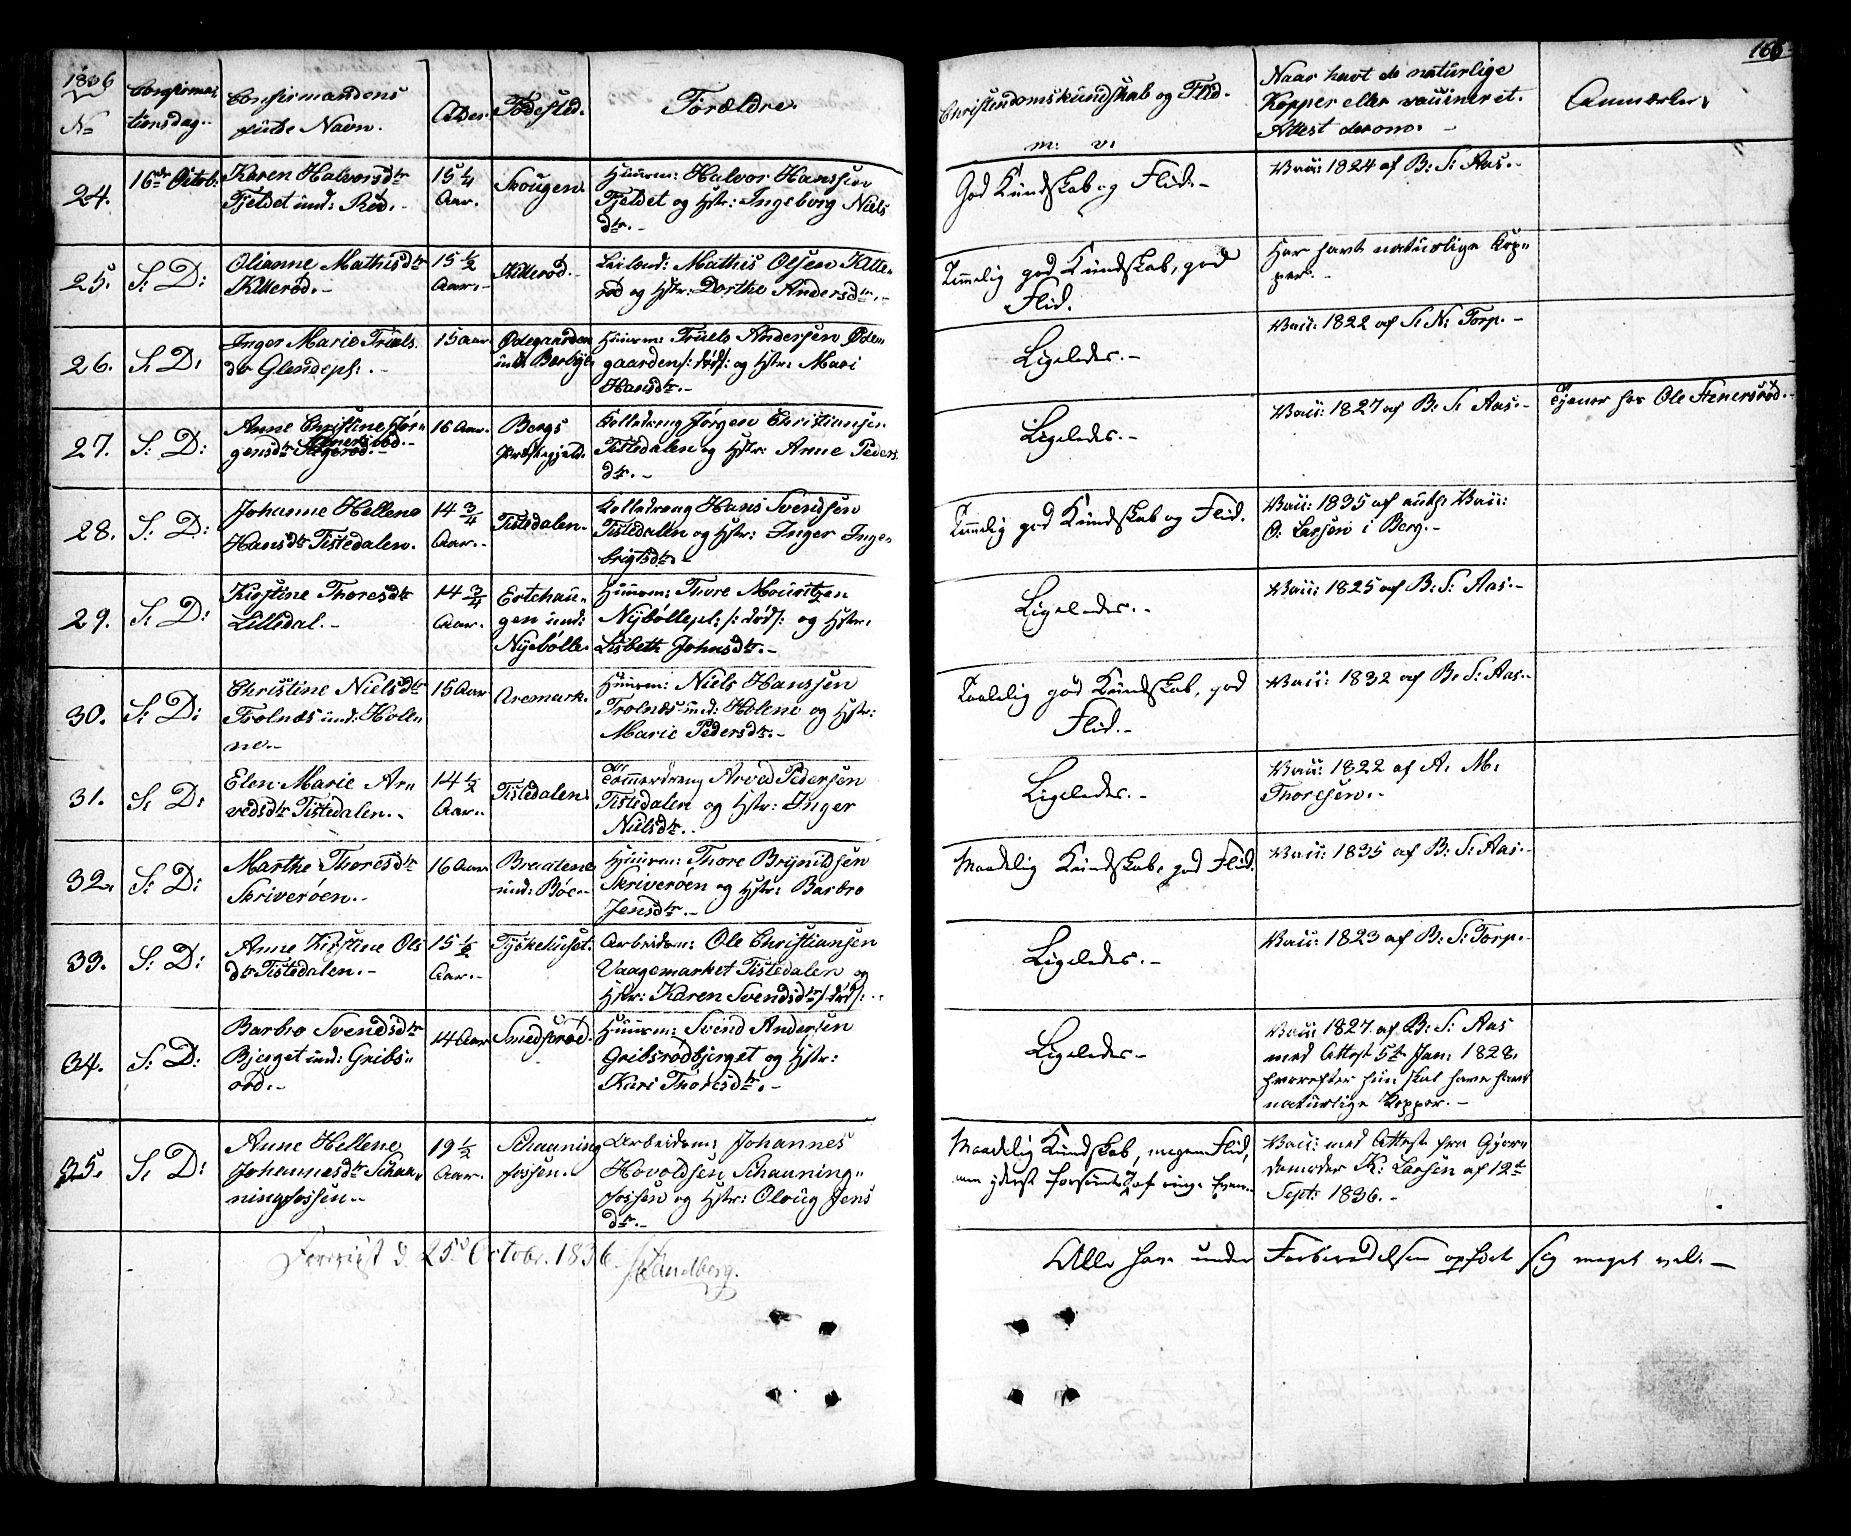 166
1836
No
Confirma-
tionsdag.
Confirmandens
fulde Navn.
Alder.
Fødested.
Forældre.
Christendomskundskab og Flid.
m: v:
Naar havt de naturlige
Kopper eller vaccineret.
Attest derom. -
Anmærkn:
24.
16de Octob.
Karen Halvorsdtr
Fjeldet und: Rød. -
15 1/4
Aar.
Skougen
Huusm: Halvor Hanssen
Fjeldet og Hstr: Ingeborg Niels
dtr. -
God Kundskab og Flid. -
Vacc: 1824 af B: S: Aas. -
25.
S: D:
Olianne Mathisdtr
Kitterød. -
15 1/2
Aar. -
Kitterød. -
Leilænd: Mathis Olsen Kitte-
rød og Hstr: Dorthe Andersdtr. -
Temmelig god Kundskab, god
Flid.
Har havt naturlige Kop-
per. -
26.
S: D:
Inger Marie Truels
dtr Glendepl: . -
15 Aar
Ødegaarden
und: Berbye
Huusm: Truels Andersen Øde-
gaarden /: død /: og Hstr: Mari
Hansdtr. -
Ligeledes. -
Vacc: 1822 af S: N: Torp. -
27.
S: D:
Anne Christine Jør-
gensdtr Stenersrød. -
16 Aar. -
Bergs
Præstegjeld.
Kolledreng Jørgen Christiansen
Tistedalen og Hstr: Anne Peders
dtr. -
Ligeledes. -
Vacc: 1827 af B: S: Aas. -
Tjener hos Ole Stenersrød. -
28.
S: D:
Johanne Hellene
Hansdtr Tistedalen.
14 3/4
Aar. -
Tistedalen -
Kolledreng Hans Svendsen
Tistedalen og Hstr: Inger Inge-
brigtsdtr. -
Temmelig god Kundskab og Flid.
Vacc: 1835 af auth: Vacc:
O: Larsen i Berg. -
29.
S: D:
Kirstine Thoresdtr
Lilledal. -
14 3/4
Aar. -
Ertehau-
gen und:
Nyebølle.
Huusm: Thore Mouritzen
Nybøllepl: /: død /: og Hstr:
Lisbeth Johnsdtr. -
Ligeledes. -
Vacc: 1825 af B: S: Aas. -
30.
S: D:
Christine Nielsdtr
Trolnæs und: Holle-
ne. -
15 Aar
Aremark.
Huusm: Niels Hanssen
Trolnæs und: Holene og Hstr:
Marie Pedersdtr. -
Taalelig god Kundskab, god
Flid. -
Vacc: 1832 af B: S: Aas. -
31.
S: D:
Elen Marie Ar-
vedsdtr Tistedalen. -
14 1/2
Aar. -
Tistedalen
Tømmerdreng Arved Pedersen
Tistedalen og Hstr: Inger
Nielsdtr. -
Ligeledes. -
Vacc: 1822 af A: M:
Thoresen. -
32.
S: D:
Marthe Thoresdtr
Skriverøen. -
16 Aar
Braatene
und: Bøe. -
Huusm: Thore Brynildsen
Skriverøen og Hstr: Barbro
Jensdtr. -
Maadelig Kundskab, god Flid.
Vacc: 1835 af B: S: Aas. -
33.
S: D:
Anne Kirstine Ols
dtr Tistedalen. -
15 1/2
Aar. -
Tyskehuset.
Arbeidsm: Ole Christiansen
Vaagemarket Tistedalen og
Hstr: Karen Svendsdtr /: død /: -
Ligeledes. -
Vacc: 1823 af B: S: Torp. -
34.
S: D:
Barbro Svendsdtr
Bjerget und: Gribs-
rød. -
14 Aar
Smedsrød.
Huusm: Svend Andersen
Gribsrødbjerget og Hstr:
Kari Thoresdtr. -
Ligeledes -
Vacc: 1827 af B: S: Aas
med Attest 5te Jan: 1828.
hvorefter hun skal have havt
naturlige Kopper. -
35.
S: D:
Anne Hellene
Johannesdtr Schan-
ningfossen. -
19 1/2
Aar. -
Schanning
fossen. -
Arbeidsm: Johannes
Hovoldsen Schanning-
fossen og Hstr: Oloug Jens
dtr. -
Maadelig Kundskab, megen Flid,
men yderst forsømt af ringe
Vacc: med Attest fra Gjor-
demoder K: Larsen af 12te
Sept: 1836. -
d. 25de Octobr. 1836.
Alle have under Forberedelsen opført sig meget vel. -